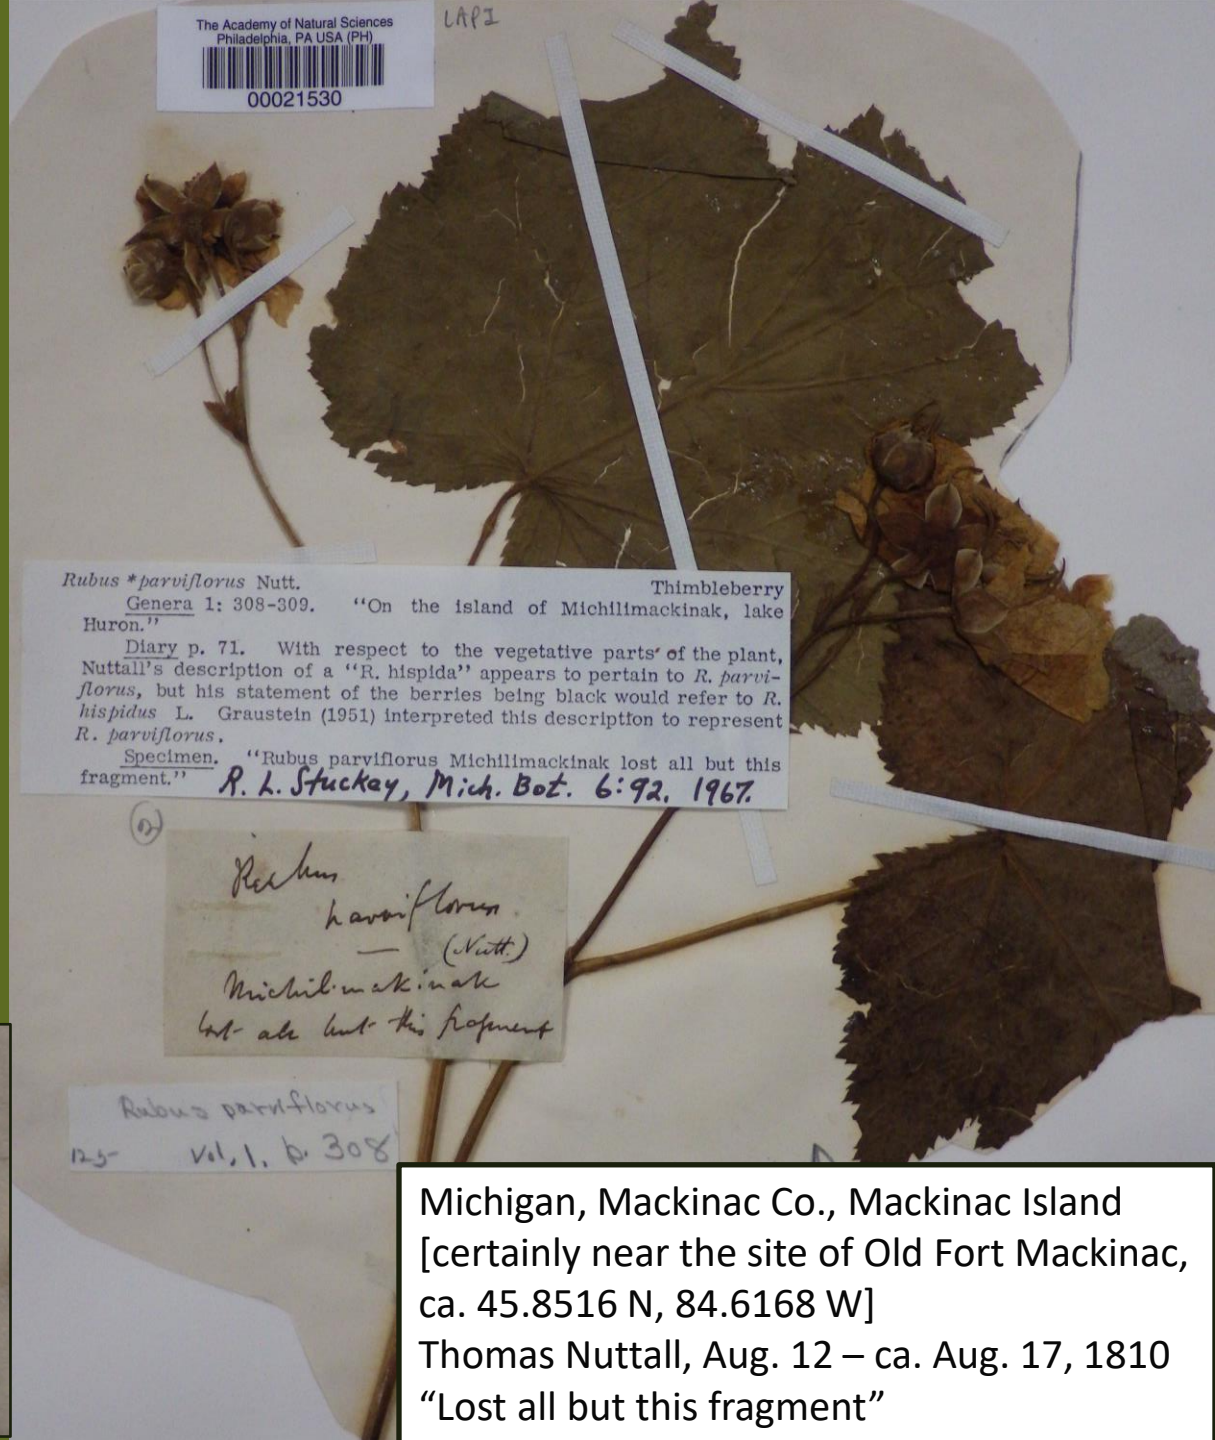 The Academy of Natural Sciences
Philadelphia, PA USA (PH)
00021530
LAPI
Rubus *parviflorus Nutt. Thimbleberry
Genera 1: 308-309. “On the island of Michilimackinak, lake
Huron.”
Diary p. 71. With respect to the vegetative parts of the plant,
Nuttall's description of a “R. hispida” appears to pertain to R. parvi-
florus, but his statement of the berries being black would refer to R.
hispidus L. Graustein (1951) interpreted this description to represent
R. parviflorus.
Specimen. “Rubus parviflorus Michilimackinak lost all but this
fragment.” R. L. Stuckey, Mich. Bot. 6:92. 1967.
Rubus
parviflorus
— (Nutt.)
Michilimakinak
lost all but this fragment
Rubus parviflorus
Vol. 1. p. 308
Michigan, Mackinac Co., Mackinac Island
[certainly near the site of Old Fort Mackinac,
ca. 45.8516 N, 84.6168 W]
Thomas Nuttall, Aug. 12 – ca. Aug. 17, 1810
“Lost all but this fragment”